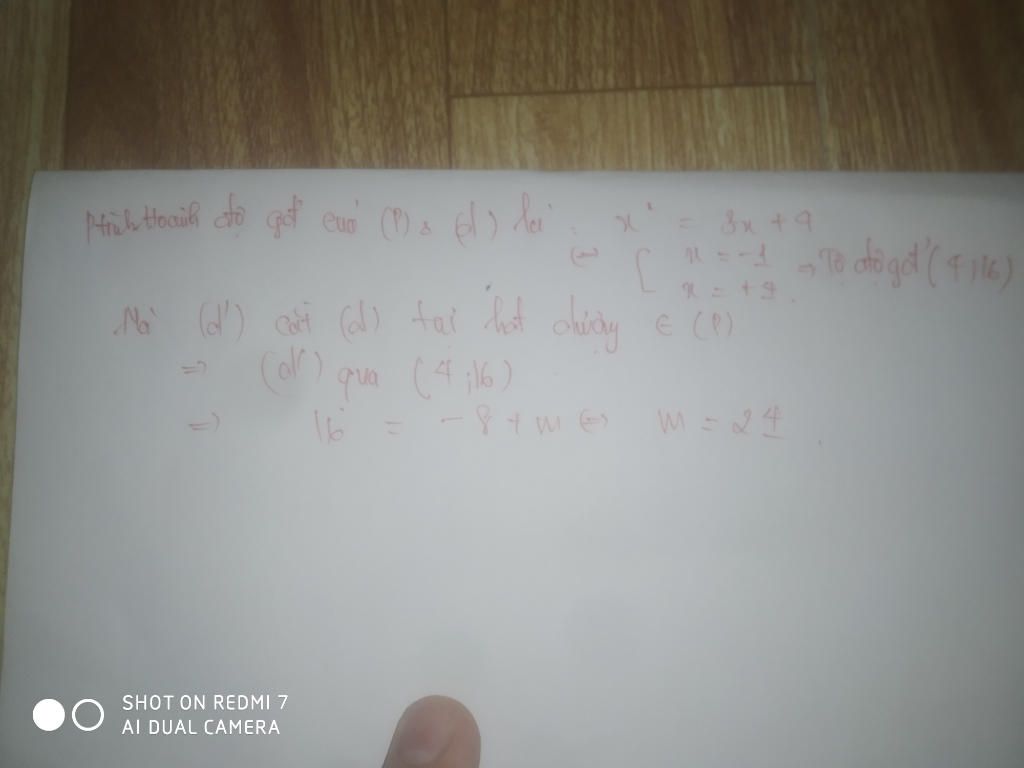 Ptrình Hoành độ gđ của (P) & (d) là : x² = 3x + 4
⇔ [ x = -1 ⇒ Tọa độ gđ (4;16)
x = +4.
Mà (d') cắt (d) tại hđt dương ∈ (P)
⇒ (d') qua (4;16)
⇒ 16 = -8 + m ⇔ m = 24.
SHOT ON REDMI 7
AI DUAL CAMERA